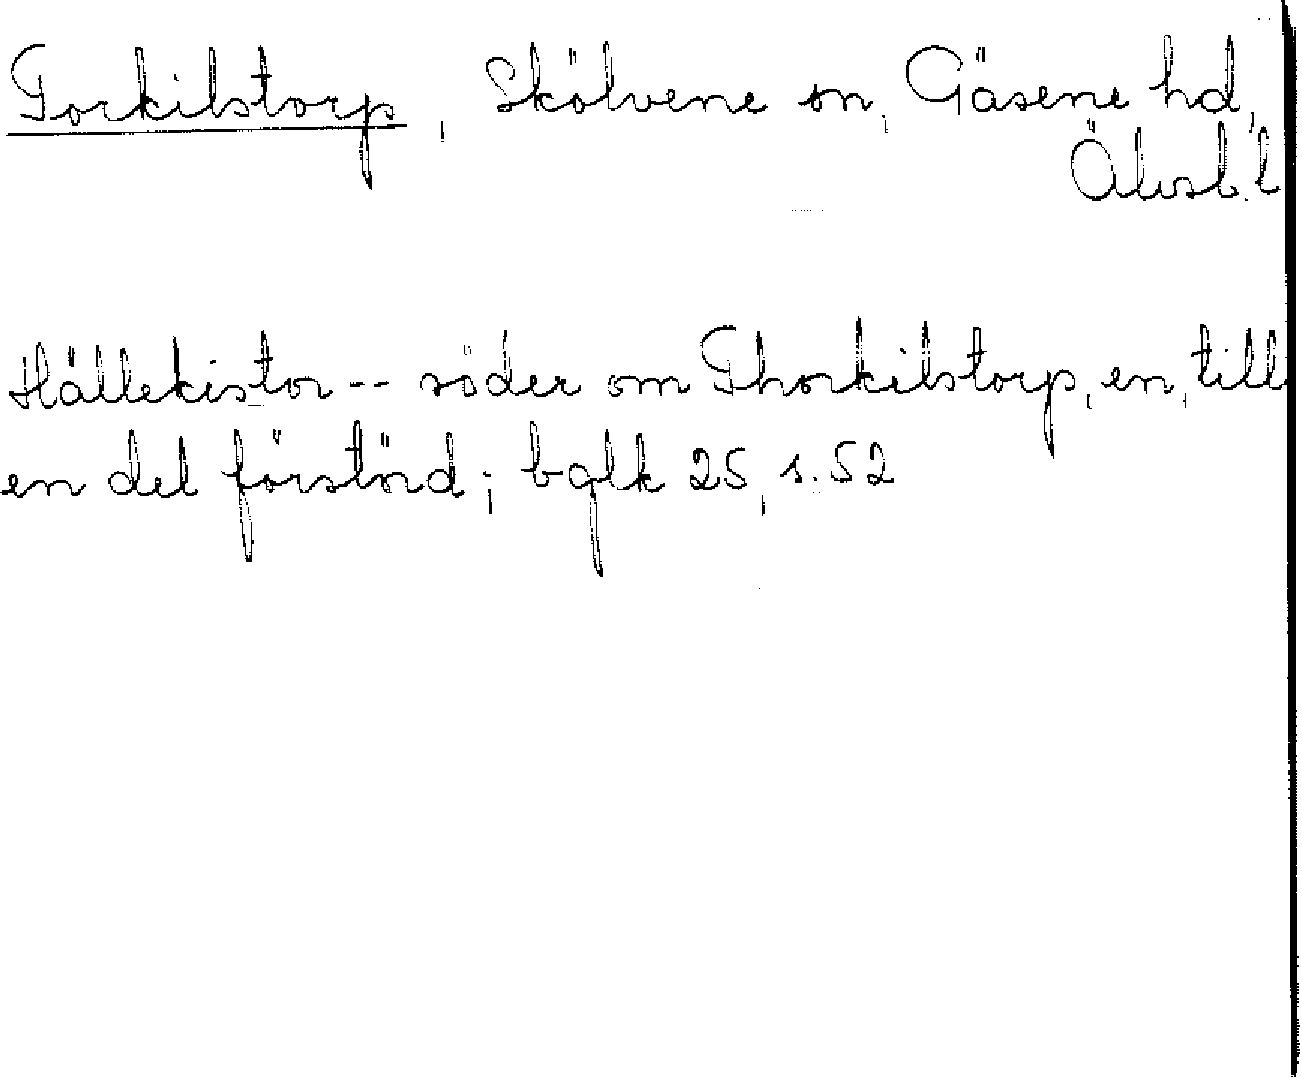 Torkilstorp, Skölvene sn, Gäsene hd,
Älvsb. l
Hällekistor -- söder om Thorkilstorp, en, till
en del förstörd; bglk 25, s. 52